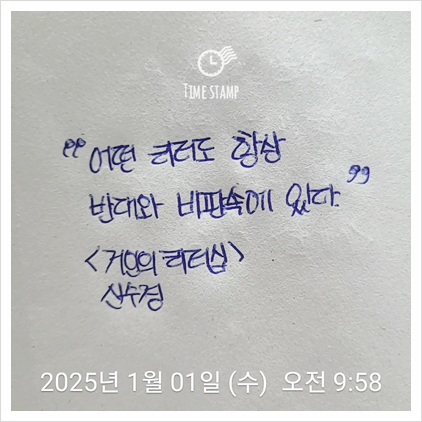 TIME STAMP
"어떤 리더도 항상
반대와 비판속에 있다."
<거인의 리더십>
신수정
2025년 1월 01일 (수) 오전 9:58